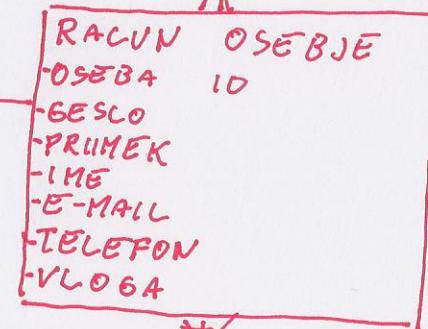 RACUN OSEBJE
-OSEBA ID
-GESLO
-PRIIMEK
-IME
-E-MAIL
-TELEFON
-VLOGA